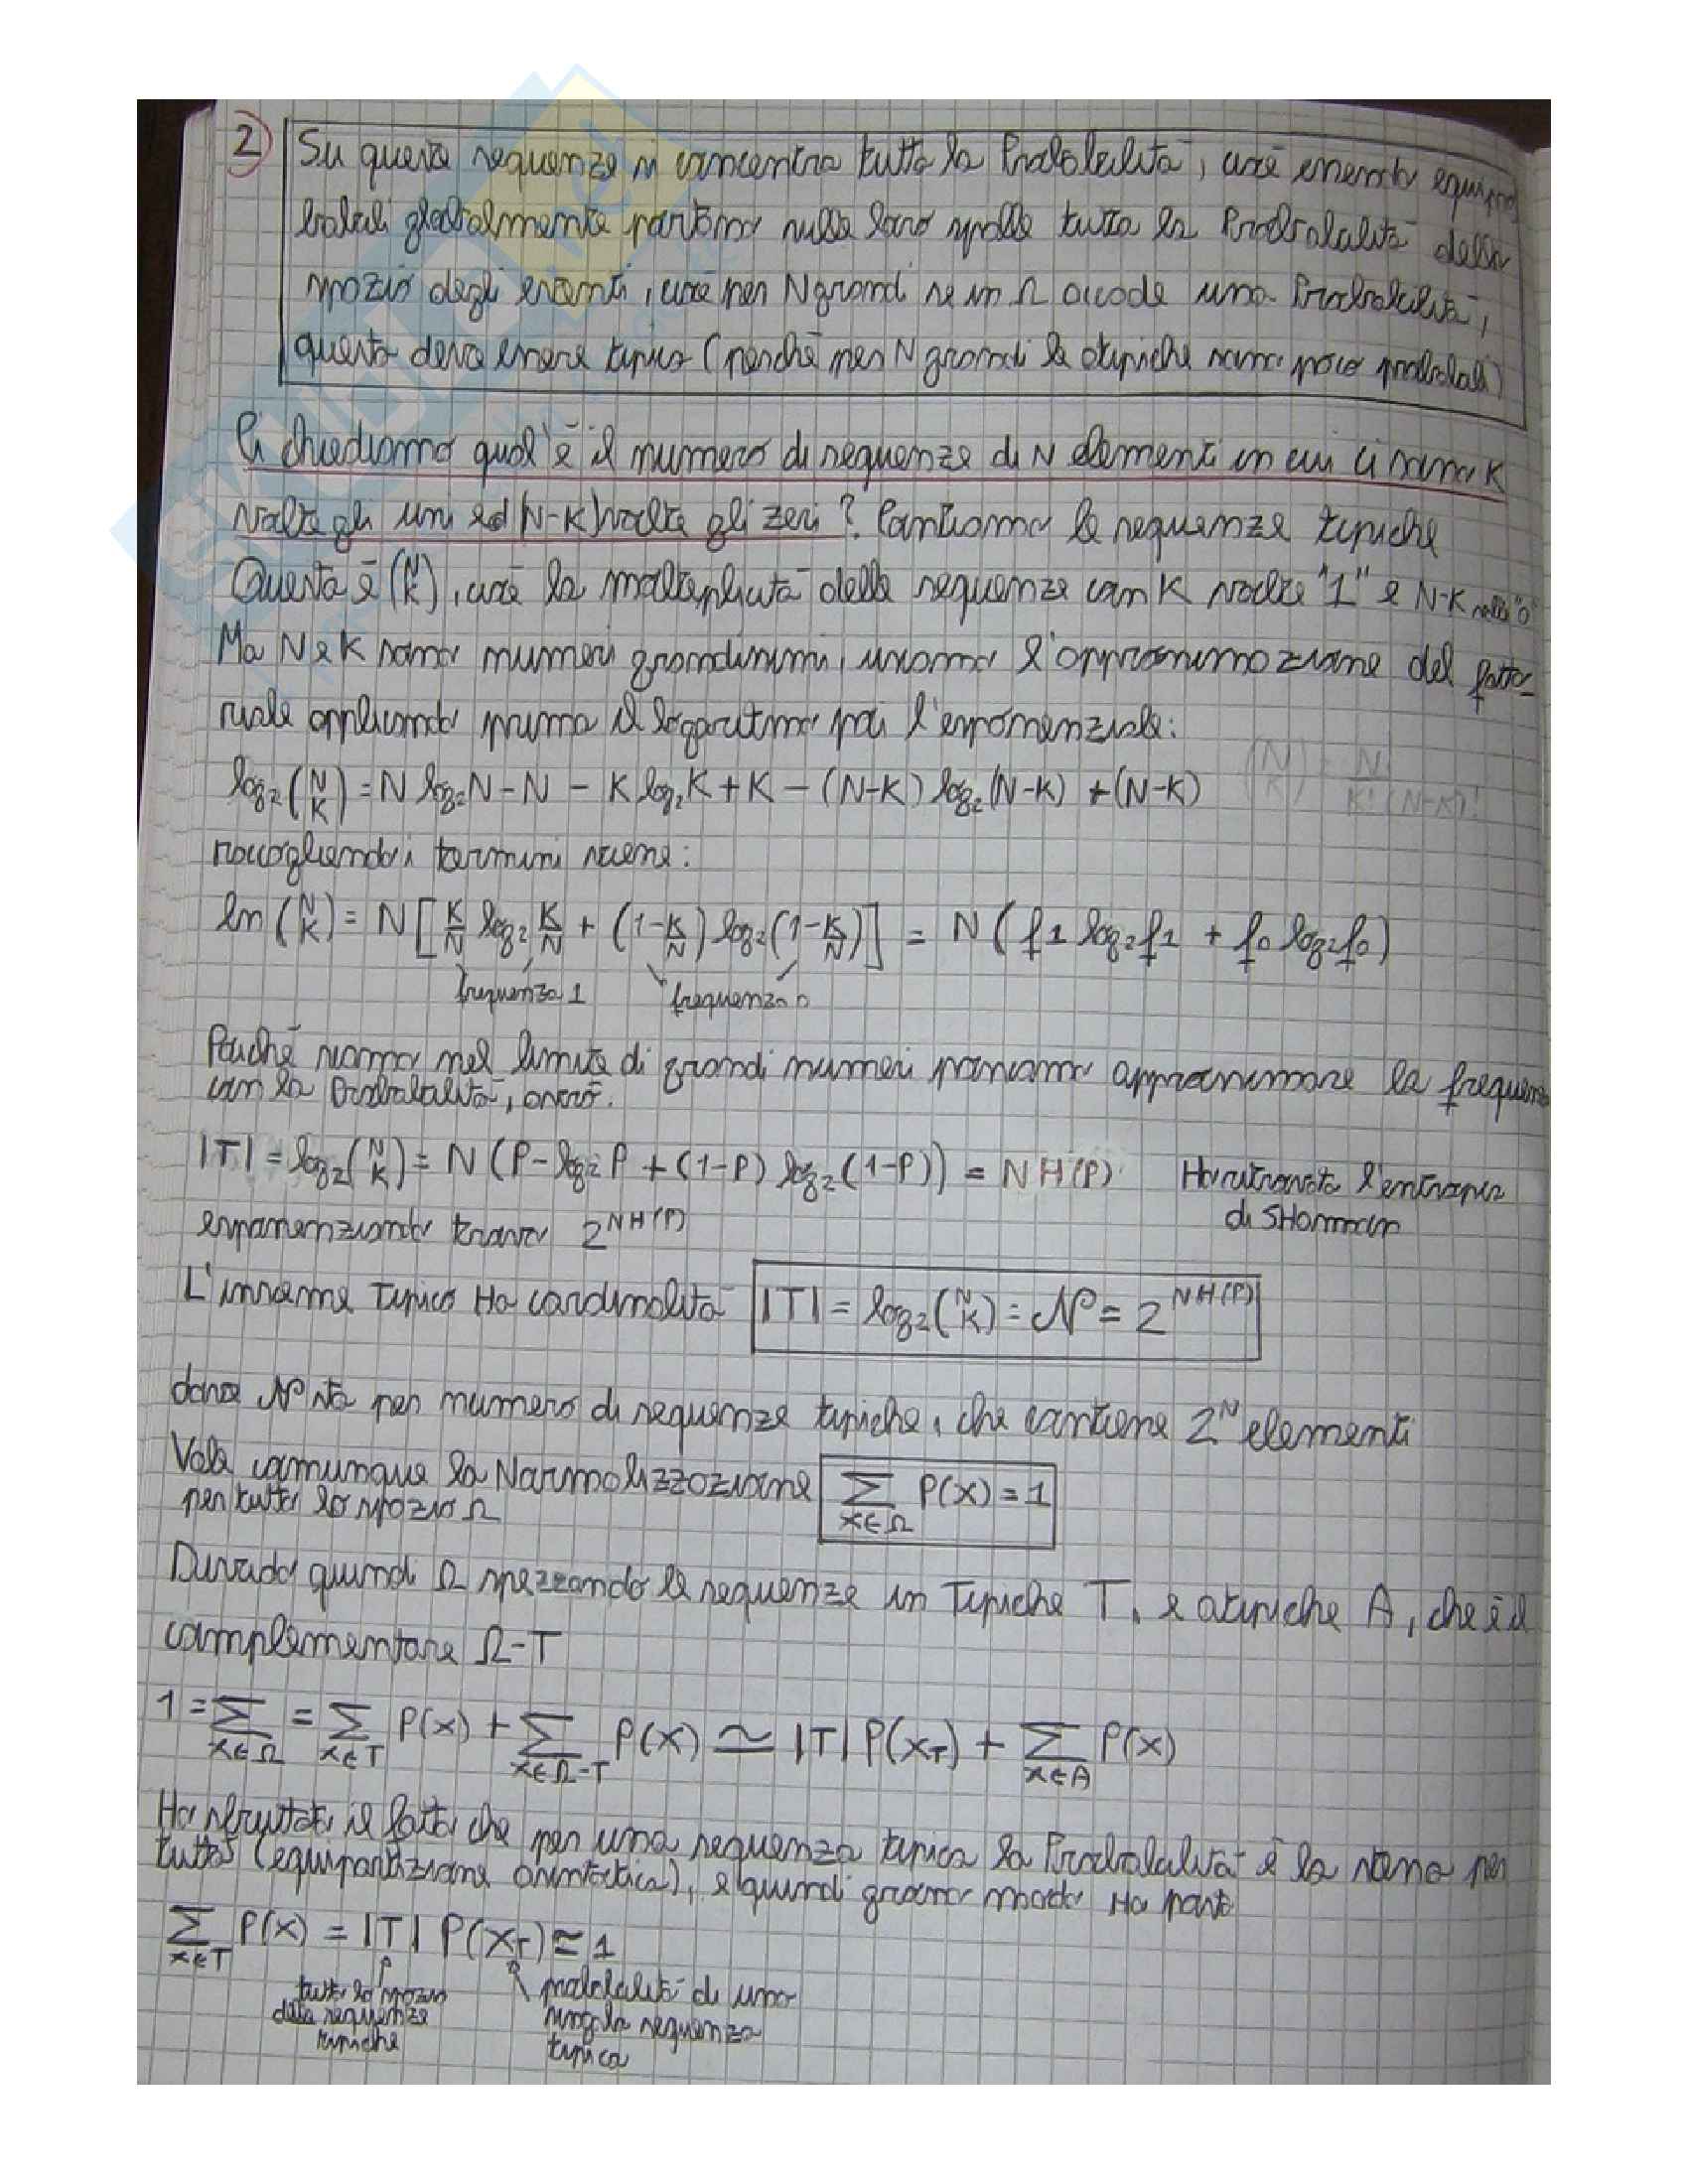 2) Su queste sequenze si concentra tutta la Probabilità, cioè essendo equipro
babili globalmente portano sulle loro spalle tutta la Probabilità dello
spazio degli eventi, cioè per N grandi se in Ω accade una Probabilità,
questa deve essere tipica (perché per N grandi le atipiche sono poco probabili)
Ci chiediamo qual'è il numero di sequenze di N elementi in cui ci sono K
volte gli uni ed (N-K) volte gli zeri? Contiamo le sequenze tipiche
Questa è (N K), cioè la molteplicità delle sequenze con K volte "1" e N-K volte "0"
Ma N e K sono numeri grandissimi, usiamo l'approssimazione del fatto-
riale applicando prima il logaritmo poi l'esponenziale:
(N K) = N! / K!(N-K)!
log₂(N K) = N log₂N - N - K log₂K + K - (N-K) log₂(N-K) + (N-K)
raccogliendo i termini viene:
ln (N K) = N [K/N log₂ K/N + (1-K/N) log₂(1-K/N)] = N (f1 log₂f1 + f0 log₂f0)
frequenza 1 frequenza 0
Poiché siamo nel limite di grandi numeri possiamo approssimare la frequenza
con la Probabilità, ovvero:
|T| = log₂(N K) = N (P-log₂ P + (1-P) log₂(1-P)) = N H(P) Ho ritrovato l'entropia
di SHannon
esponenziando trovo 2^NH(P)
L'insieme Tipico Ha cardinalità |T| = log₂(N K) = 𝒩 = 2^NH(P)
dove 𝒩 sta per numero di sequenze tipiche, che contiene 2^N elementi
Vale comunque la Normalizzazione Σ x∈Ω P(x) = 1
per tutto lo spazio Ω
Divido quindi Ω spezzando le sequenze in Tipiche T, e atipiche A, che è il
complementare Ω-T
1 = Σ x∈Ω = Σ x∈T P(x) + Σ x∈Ω-T P(x) ≃ |T| P(x_T) + Σ x∈A P(x)
Ho sfruttato il fatto che per una sequenza tipica la Probabilità è la stessa per
tutte (equipartizione asintotica), e quindi grosso modo Ho posto
Σ x∈T P(x) = |T| P(x_T) ≃ 1
tutto lo spazio
delle sequenze
tipiche
probabilità di una
singola sequenza
tipica